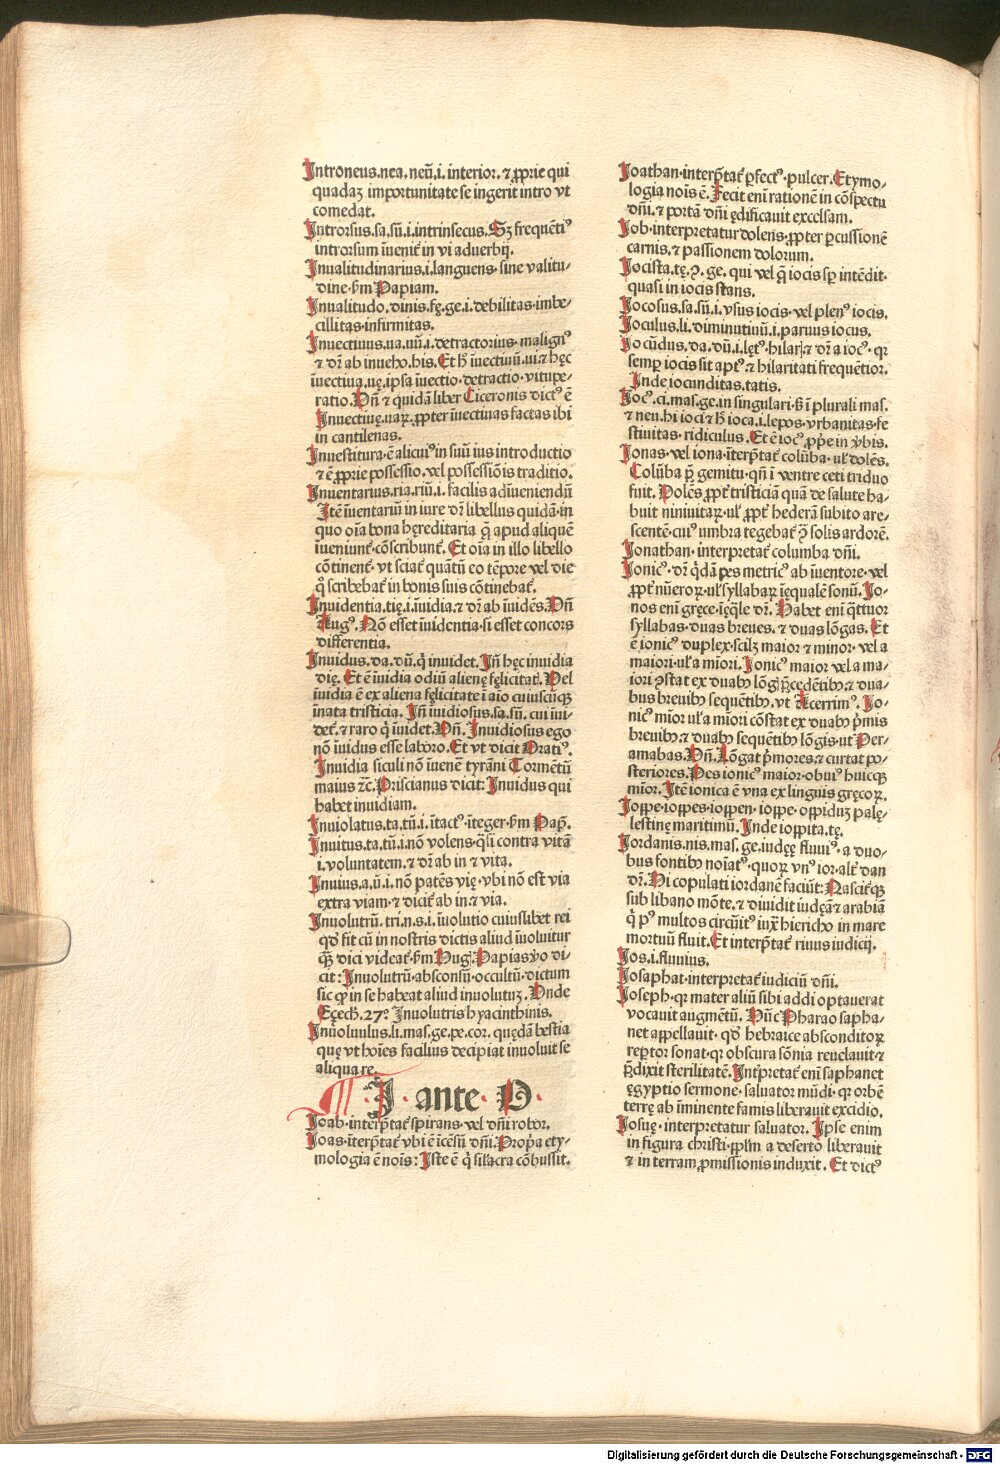 Introneus.nea.neū.i.interior.⁊ ꝓprie qui
quadaꝫ importunitate se ingerit intro vt
comedat.
Introrsus.sa.sū.i.intrinsecus.Sꝫ frequētiꝰ
introrsum īuenit̄ in vi aduerbij.
Inualitudinarius.i.languens·sine valitu-
dine·ẜm Papiam.
Inualitudo.dinis.fę.ge.i.debilitas·imbe-
cillitas·infirmitas.
Inuectiuus.ua.uū.i.detractorius·malignꝰ
⁊ dr̄ ab inueho.his.Et ħ īuectiuū.ui.⁊ hęc
īuectiua.uę.ipsa īuectio·detractio·vitupe-
ratio.Vn̄ ⁊ quidā liber Ciceronis dictꝰ ē
Inuectiuę.uaꝝ.ꝓpter īuectiuas factas ibi
in cantilenas.
Inuestitura·ē alicuiꝰ in suū ius introductio
⁊ ē ꝓprie possessio.vel possessiōis traditio.
Inuentarius.ria.riū.i.facilis ad īueniendū
Itē īuentariū in iure dr̄ libellus quidā·in
quo oīa bona hęreditaria q̄ apud aliquē
īueniunt̄·cōscribunt̄.Et oīa in illo libello
cōtinent̄·vt sciat̄ quātū eo tēpore vel die
q̊ scribebat̄ in bonis suis cōtinebat̄.
Inuidentia.tię.i.īuidia.⁊ dr̄ ab īuidēs.Vn̄
Augꝰ.Nō esset īuidentia·si esset concors
differentia.
Inuidus.da.dū.q̇ inuidet.In̄ hęc inuidia
dię.Et ē īuidia odiū alienę fęlicitat̄.Vel
īuidia ē ex aliena fęlicitate ī aīo cuiuscūqꝫ
īnata tristicia.In̄ īuidiosus.sa.sū.cui īui-
det̄.⁊ raro q̇ īuidet.Vn̄.Inuidiosus ego
nō īuidus esse laboro.Et vt dicit Oratiꝰ.
Inuidia siculi nō īuenē tyrāni Tormētū
maius ⁊c̄.Priscianus dicit:Inuidus qui
habet inuidiam.
Inuiolatus.ta.tū.i.ītactꝰ·īteger·ẜm Pap̄.
Inuitus.ta.tū.i.nō volens·q̄si contra vitā
i.voluntatem.⁊ dr̄ ab in ⁊ vita.
Inuius.a.ū.i.nō patēs vię·vbi nō est via
extra viam·⁊ dicit̄ ab in.⁊ via.
Inuolutrū.tri.n.s.i.īuolutio cuiuslibet rei
qd̓ fit cū in nostris dictis aliud īuoluitur
q̄ꝫ dici videat̄·ẜm Hug̓.Papias v̓o di-
cit:Inuolutrū·absconsū·occultū·dictum
sic qꝫ in se habeat aliud inuolutuꝫ.Vnde
Eȩecħ.27°.Inuolutris hyacinthinis.
Inuoluulus.li.mas.ge.pe.cor.quędā bestia
quę vt hoīes facilius decipiat inuoluit se
aliqua re.
¶·I·ante·O·
Ioab·interp̄tat̄ spirans·vel dn̄i robor.
Ioas·īterp̄tat̄ vbi ē īcēsū dn̄i.Propͥa ety-
mologia ē noīs:Iste ē q̇ sil̓acra cōbussit.
Ioathan·interp̄tat̄ ꝑfectꝰ·pulcer.Etymo-
logia noīs ē.Fecit eni rationē in cōspectu
dn̄i.⁊ portā dn̄i ędificauit excelsam.
Iob·interpretatur dolens·ꝓpter ꝑcussionē
carnis.⁊ passionem dolorum.
Iocista.tę.ꝯ.ge.qui vel q̄ iocis sꝑ intēdit·
quasi in iocis stans.
Iocosus.sa.sū.i.vsus iocis·vel plenꝰ iocis.
Ioculus.li.diminutiuū.i.paruus iocus.
Iocūdus.da.dū.i.lętꝰ·hilaꝝ.⁊ dr̄ a iocꝰ·qꝛ
semꝑ iocis sit aptꝰ ⁊ hilaritati frequētior.
Inde iocunditas.tatis.
Iocꝰ.ci.mas.ge.in singulari·ẜ ī plurali mas.
⁊ neu.hi ioci ⁊ ħ ioca.i.lepos·vrbanitas·fe
stiuitas·ridiculus.Et ē iocꝰ ꝓp̄e in v̓bis.
Ionas·vel iona·īterp̄tat̄ colūba·ul̓ dolēs.
Colūba ꝑ̄ gemitu·qn̄ i ventre ceti triduo
fuit.Dolēs ꝓpt̓ tristiciā quā de salute ha-
buit niniuitaꝝ·ul̓ ꝓpt̓ hederā subito are-
scentē·cuiꝰ umbra tegebat̄ ꝯ̄ solis ardorē.
Ionathan·interpretat̄ columba dn̄i.
Ionicꝰ·dr̄ q̇dā pes metricꝰ ab īuentore·vel
ꝓpt̓ nūeroꝝ·ul̓ syllabaꝝ īęqualē sonū.Io-
nos eni gręce·īęq̄le dr̄.Habet eni q̄ttuor
syllabas·duas breues.⁊ duas lōgas.Et
ē ionicꝰ duplex·scilꝫ maior ⁊ minor·vel a
maiori·ul̓ a mīori.Ionicꝰ maior vel a ma-
iori ꝯstat ex duabꝫ lōgis p̄cedētibꝫ·⁊ dua-
bus breuibꝫ sequētibꝫ.vt Acerrimꝰ.Io-
nicꝰ mīor ul̓ a mīori cōstat ex duabꝫ p̄mis
breuibꝫ·⁊ duabꝫ sequētibꝫ lōgis·ut Per-
amabas.Vn̄.Lōgat p̄mores·⁊ curtat po-
steriores.Pes ionicꝰ maior·obuiꝰ huicqꝫ
mīor.Itē ionica ē vna ex linguis gręcoꝝ.
Ioppe·ioppes·ioppen·ioppe·oppiduꝫ palę-
lestinę maritimū.Inde ioppita.tę.
Iordanis.nis.mas.ge.iudęę fluuiꝰ·a duo-
bus fontibꝫ noīatꝰ·quoꝝ vnꝰ ior·alt̓ dan
dr̄.Hi copulati iordanē faciūt:Nascit̄qꝫ
sub libano mōte.⁊ diuidit iudęā ⁊ arabiā
q̇ pꝰ multos circūitꝰ iux̄ hiericho in mare
mortuū fluit.Et interp̄tat̄ riuus iudicij.
Ios.i.fluuius.
Iosaphat·interpretat̄ iudiciū dn̄i.
Ioseph·qꝛ mater aliū sibi addi optauerat
vocauit augmētū.Hūc Pharao sapha-
net appellauit·qd̓ hebraice absconditoꝝ
reꝑtor sonat·qꝛ obscura sōnia reuelauit·⁊
p̄dixit sterilitatē.Int̓pretat̄ eni saphanet
ęgyptio sermone·saluator mūdi·qꝛ orbē
terrę ab īminente famis liberauit excidio.
Iosuę·interpretatur saluator.Ipse enim
in figura christi·ppl̓m a deserto liberauit
⁊ in terram ꝓmissionis induxit.Et dictꝰ
Digitalisierung gefördert durch die Deutsche Forschungsgemeinschaft - DFG